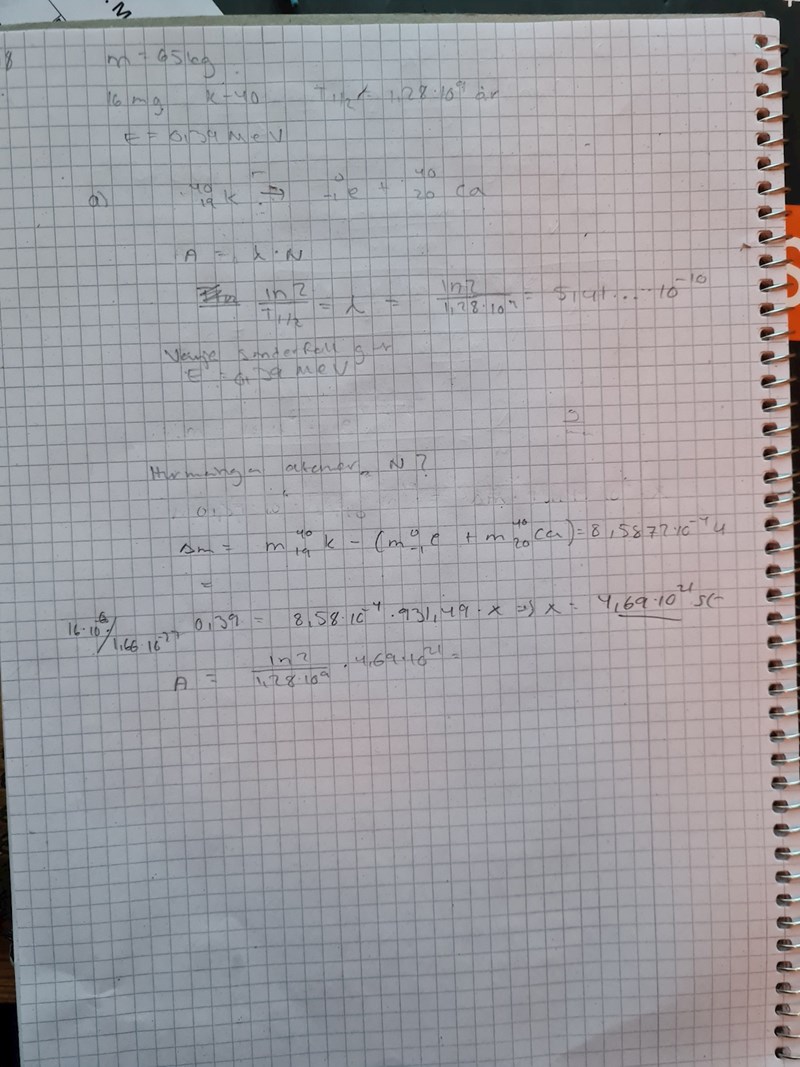 m = 65 kg
16 mg K-40 T1/2 = 1,28·10⁹ år
E = 0,39 MeV
a) ⁴⁰₁₉K → ⁰₋₁e + ⁴⁰₂₀Ca
A = λ·N
ln2/T1/2 = λ = ln2/1,28·10⁹ = 5,41...·10⁻¹⁰
Varje sönderfall ger
E = 0,39 MeV
Hur många atomer, N?
Δm = m⁴⁰₁₉K − (m⁰₋₁e + m⁴⁰₂₀Ca) = 8,5872·10⁻⁴ u
=
16·10⁻⁶/1,66·10⁻²⁷ 0,39 = 8,58·10⁻⁴·931,49·x ⇒ x = 4,69·10²¹ st
A = ln2/1,28·10⁹ · 4,69·10²¹ =